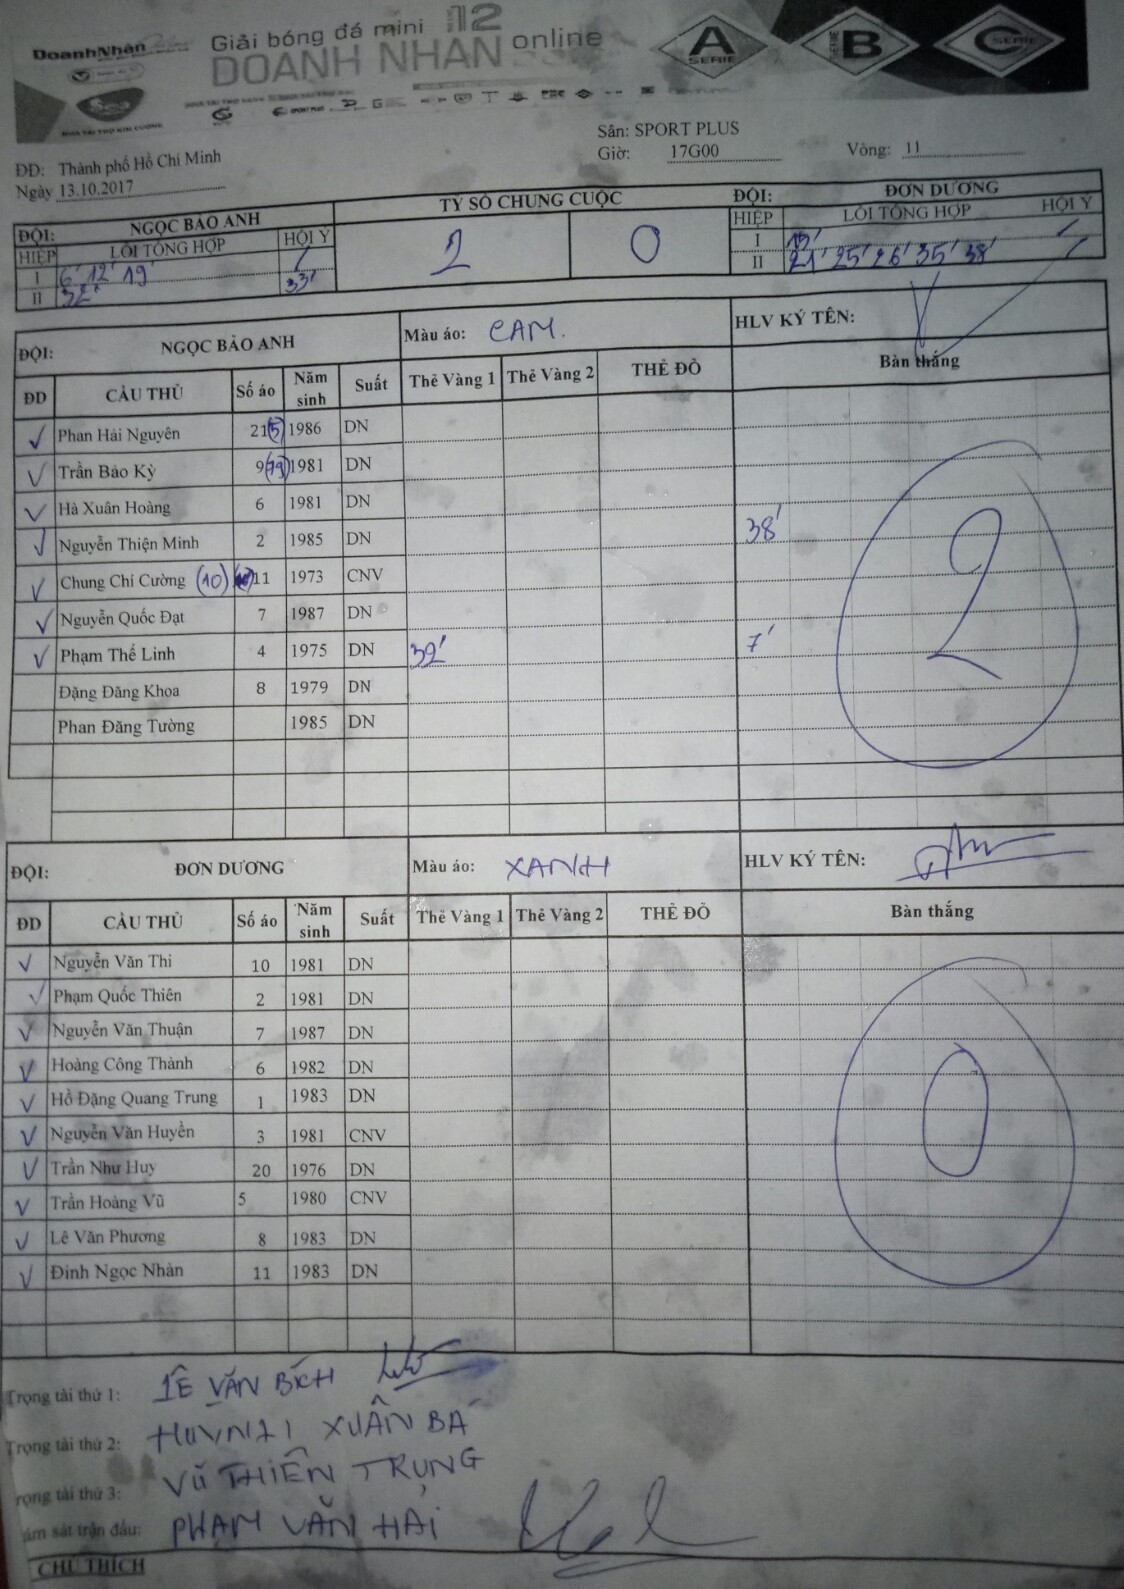 DoanhNhân
Giải bóng đá mini 12
DOANH NHÂN online
A
SERIE
B
SERIE
C
SERIE
Sea
NHÀ TÀI TRỢ KIM CƯƠNG
SPORT PLUS
Sân: SPORT PLUS
Giờ: 17G00 Vòng: 11
ĐĐ: Thành phố Hồ Chí Minh
Ngày 13.10.2017
ĐỘI: NGỌC BẢO ANH TỶ SỐ CHUNG CUỘC ĐỘI: ĐƠN DƯƠNG
HIỆP LỖI TỔNG HỢP HỘI Ý 2 0 HIỆP LỖI TỔNG HỢP HỘI Ý
I 6' 12' 19' / I 15' /
II 32' 33' II 21' 25' 26' 35' 38' /
ĐỘI: NGỌC BẢO ANH Màu áo: CAM. HLV KÝ TÊN:
ĐD CẦU THỦ Số áo Năm sinh Suất Thẻ Vàng 1 Thẻ Vàng 2 THẺ ĐỎ Bàn thắng
Phan Hải Nguyên 21 (5) 1986 DN
Trần Bảo Kỳ 9 (19) 1981 DN
Hà Xuân Hoàng 6 1981 DN
Nguyễn Thiện Minh 2 1985 DN 38'
Chung Chí Cường (10) 11 1973 CNV
Nguyễn Quốc Đạt 7 1987 DN
Phạm Thế Linh 4 1975 DN 39' 7'
Đặng Đăng Khoa 8 1979 DN
Phan Đăng Tường 1985 DN
2
ĐỘI: ĐƠN DƯƠNG Màu áo: XANH HLV KÝ TÊN:
ĐD CẦU THỦ Số áo Năm sinh Suất Thẻ Vàng 1 Thẻ Vàng 2 THẺ ĐỎ Bàn thắng
Nguyễn Văn Thi 10 1981 DN
Phạm Quốc Thiên 2 1981 DN
Nguyễn Văn Thuận 7 1987 DN
Hoàng Công Thành 6 1982 DN
Hồ Đặng Quang Trung 1 1983 DN
Nguyễn Văn Huyền 3 1981 CNV
Trần Như Huy 20 1976 DN
Trần Hoàng Vũ 5 1980 CNV
Lê Văn Phương 8 1983 DN
Đinh Ngọc Nhàn 11 1983 DN
0
Trọng tài thứ 1: LÊ VĂN BÍCH
Trọng tài thứ 2: HUỲNH XUÂN BÁ
rọng tài thứ 3: VŨ THIÊN TRUNG
ám sát trận đấu: PHẠM VĂN HẢI
CHÚ THÍCH